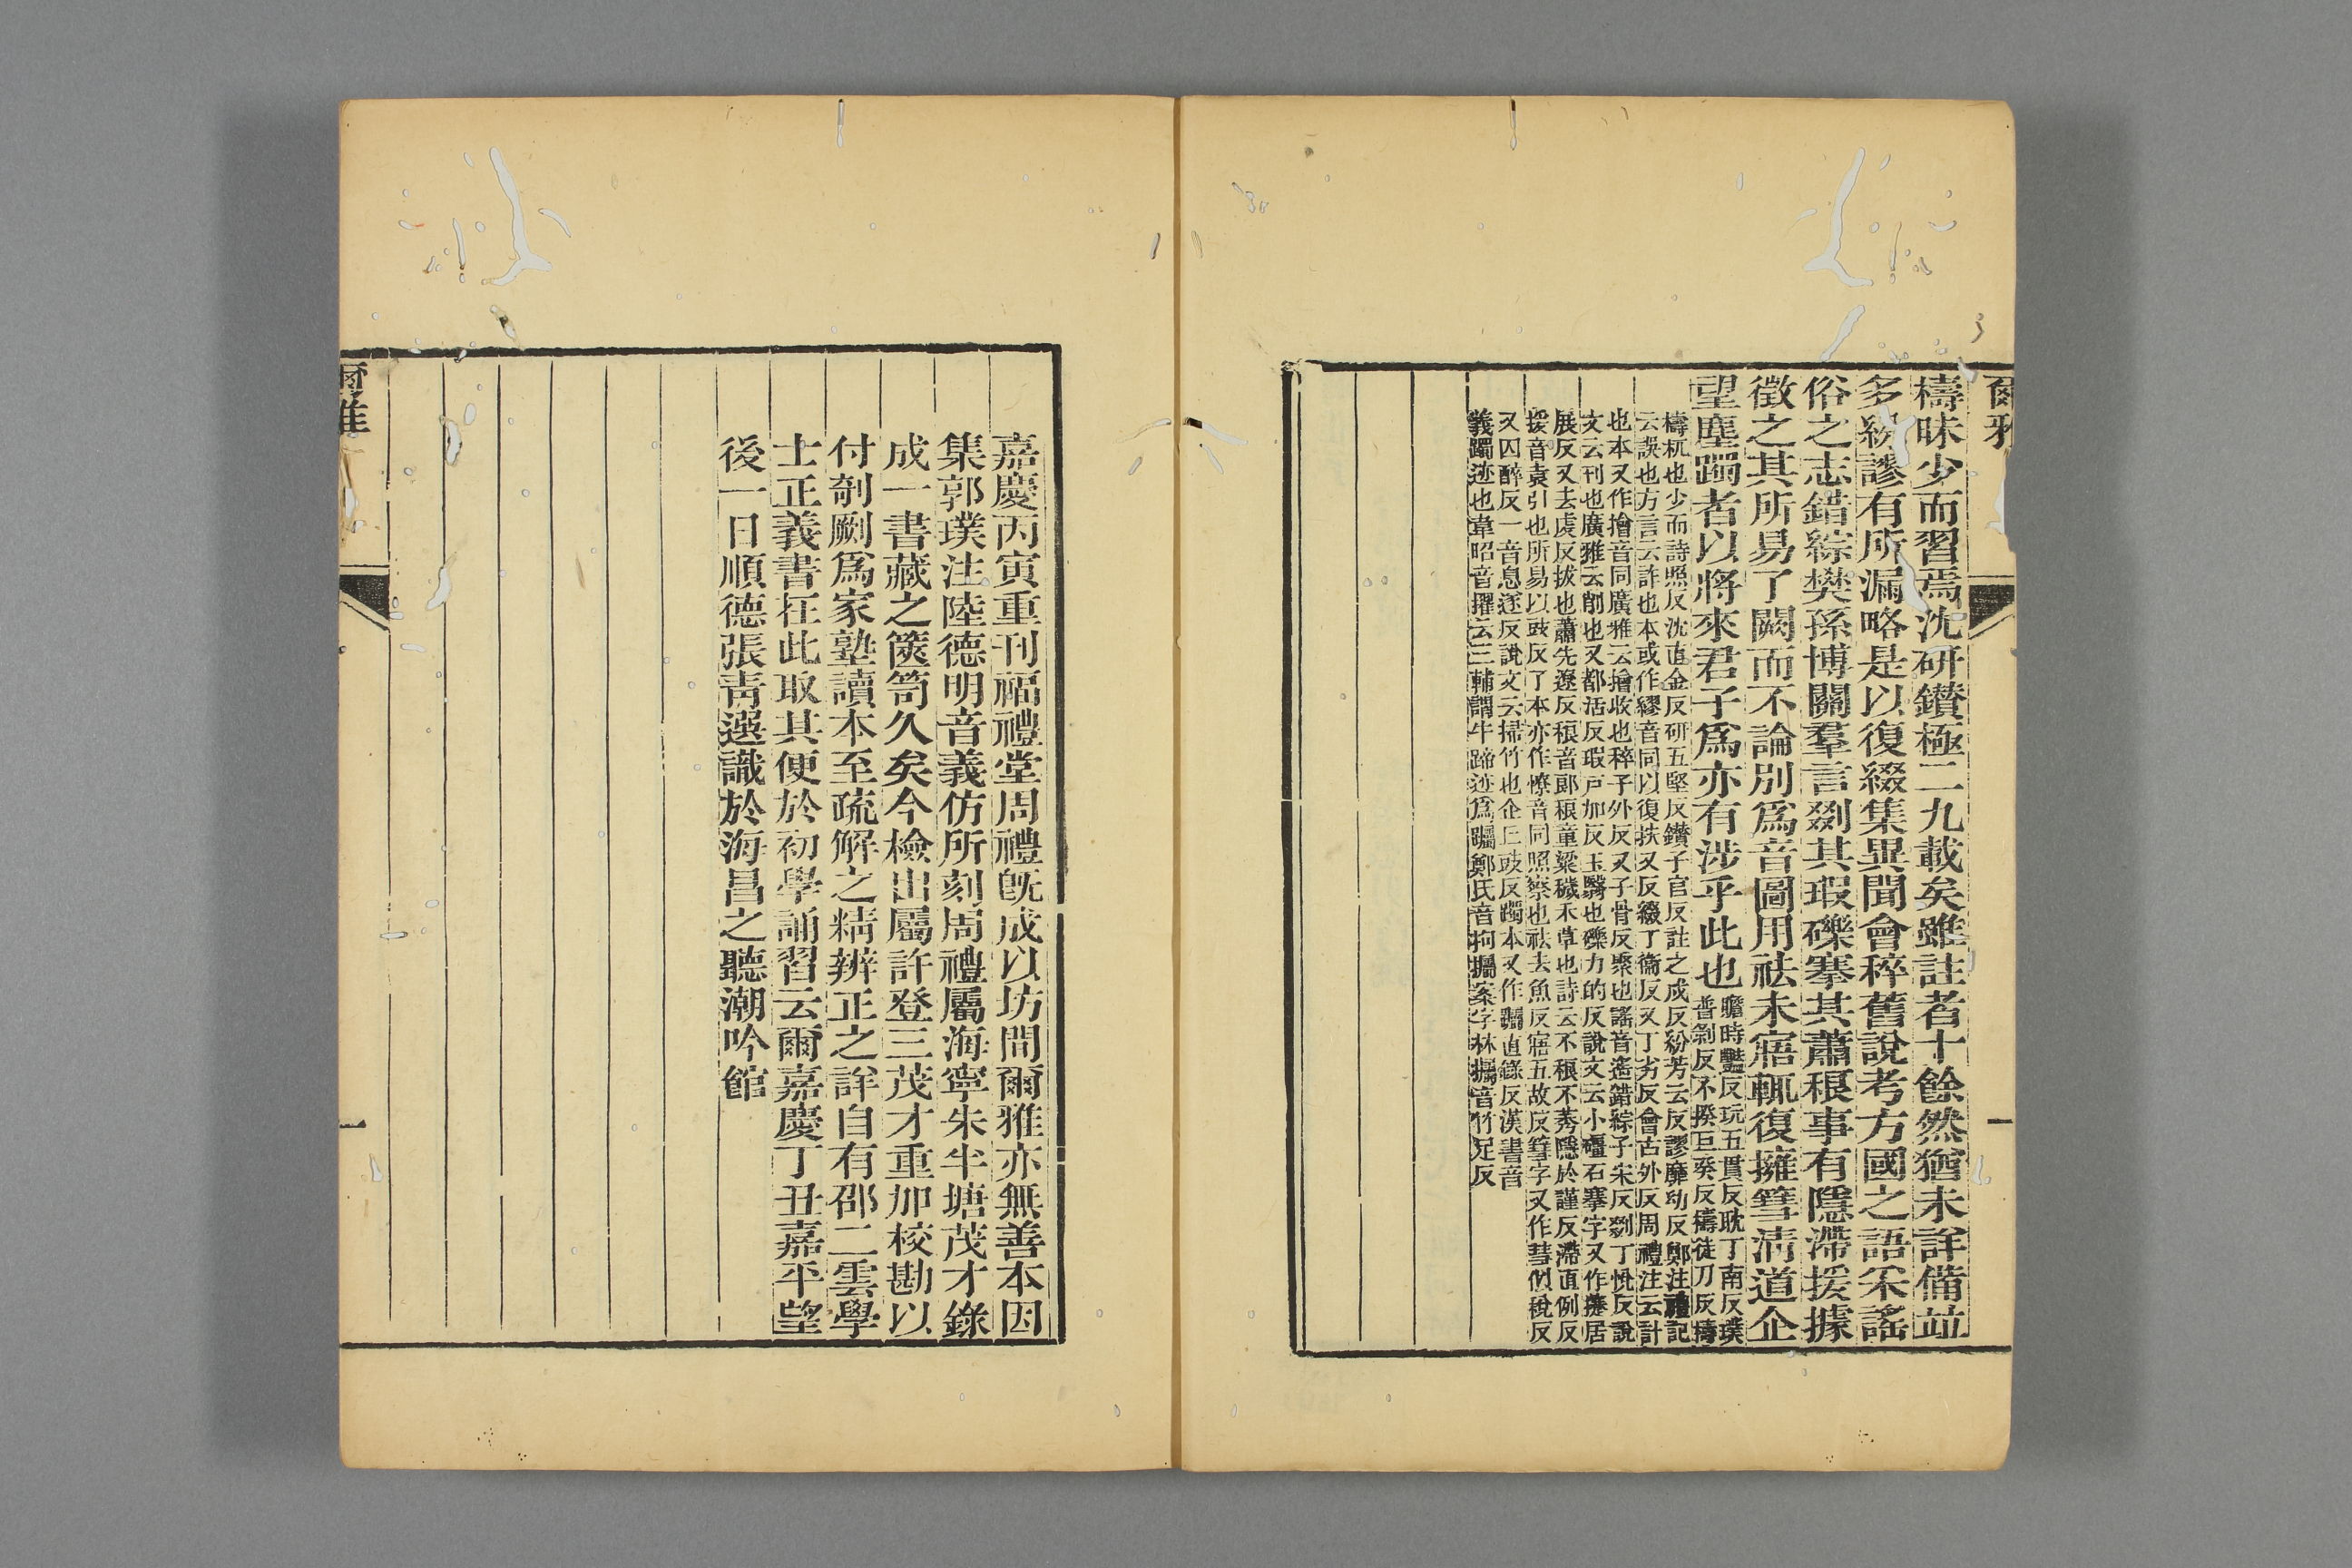 爾雅
檮昧少而習焉沈研鑽極二九載矣雖註者十餘然猶未詳備竝
多紛謬有所漏略是以復綴集異聞會稡舊說考方國之語采謠
俗之志錯綜樊孫博關羣言剟其瑕礫搴其蕭稂事有隱滯援據
徵之其所易了闕而不論別爲音圖用祛未寤輒復擁篲淸道企
望塵躅者以將來君子爲亦有涉乎此也
瞻時豔反玩五貫反耽丁南反璞
普剝反不揆巨癸反檮徒刀反檮
檮杌也少而詩照反沈直金反研五堅反鑽子官反註之戍反紛芳云反謬靡幼反鄭注禮記
云誤也方言云詐也本或作繆音同以復扶又反綴丁衞反又丁劣反會古外反周禮注云計
也本又作擔音同廣雅云擔收也稡子外反又子骨反聚也謠音遙錯綜子宋反剟丁悅反說
文云刊也廣雅云削也又都活反瑕戶加反玉翳也礫力的反說文云小礓石搴字又作攓居
展反又去虔反拔也蕭先遼反稂音郞稂童粱穢禾草也詩云不稂不莠隱於謹反滯直例反
援音袁引也所易以豉反了本亦作憭音同照察也祛去魚反寤五故反篲字又作彗似稅反
又囚醉反一音息遂反說文云掃竹也企丘豉反躅本又作躅直錄反漢書音
義躅迹也韋昭音擢云三輔謂牛蹄迹爲躅鄭氏音拘攔案字林攔音竹足反
一
嘉慶丙寅重刊福禮堂周禮旣成以坊間爾雅亦無善本因
集郭璞注陸德明音義仿所刻周禮屬海寧朱半塘茂才錄
成一書藏之篋笥久矣今檢出屬許登三茂才重加校勘以
付剞劂爲家塾讀本至疏解之精辨正之詳自有邵二雲學
士正義書在此取其便於初學誦習云爾嘉慶丁丑嘉平望
後一日順德張靑選識於海昌之聽潮吟館
爾雅
一